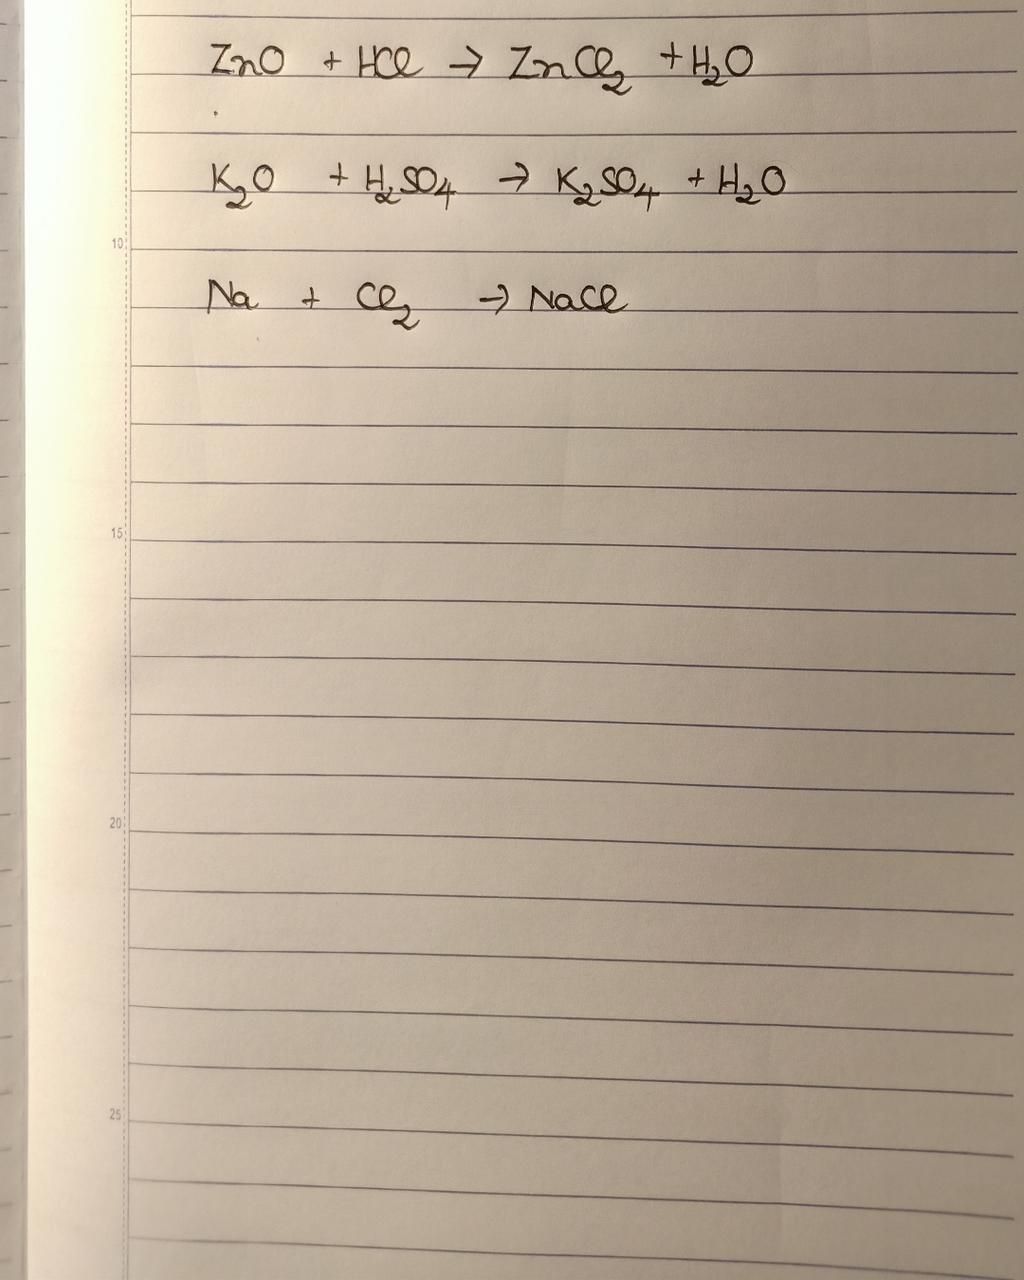 ZnO + HCl → ZnCl₂ + H₂O
K₂O + H₂SO₄ → K₂SO₄ + H₂O
10
Na + Cl₂ → NaCl
15
20
25